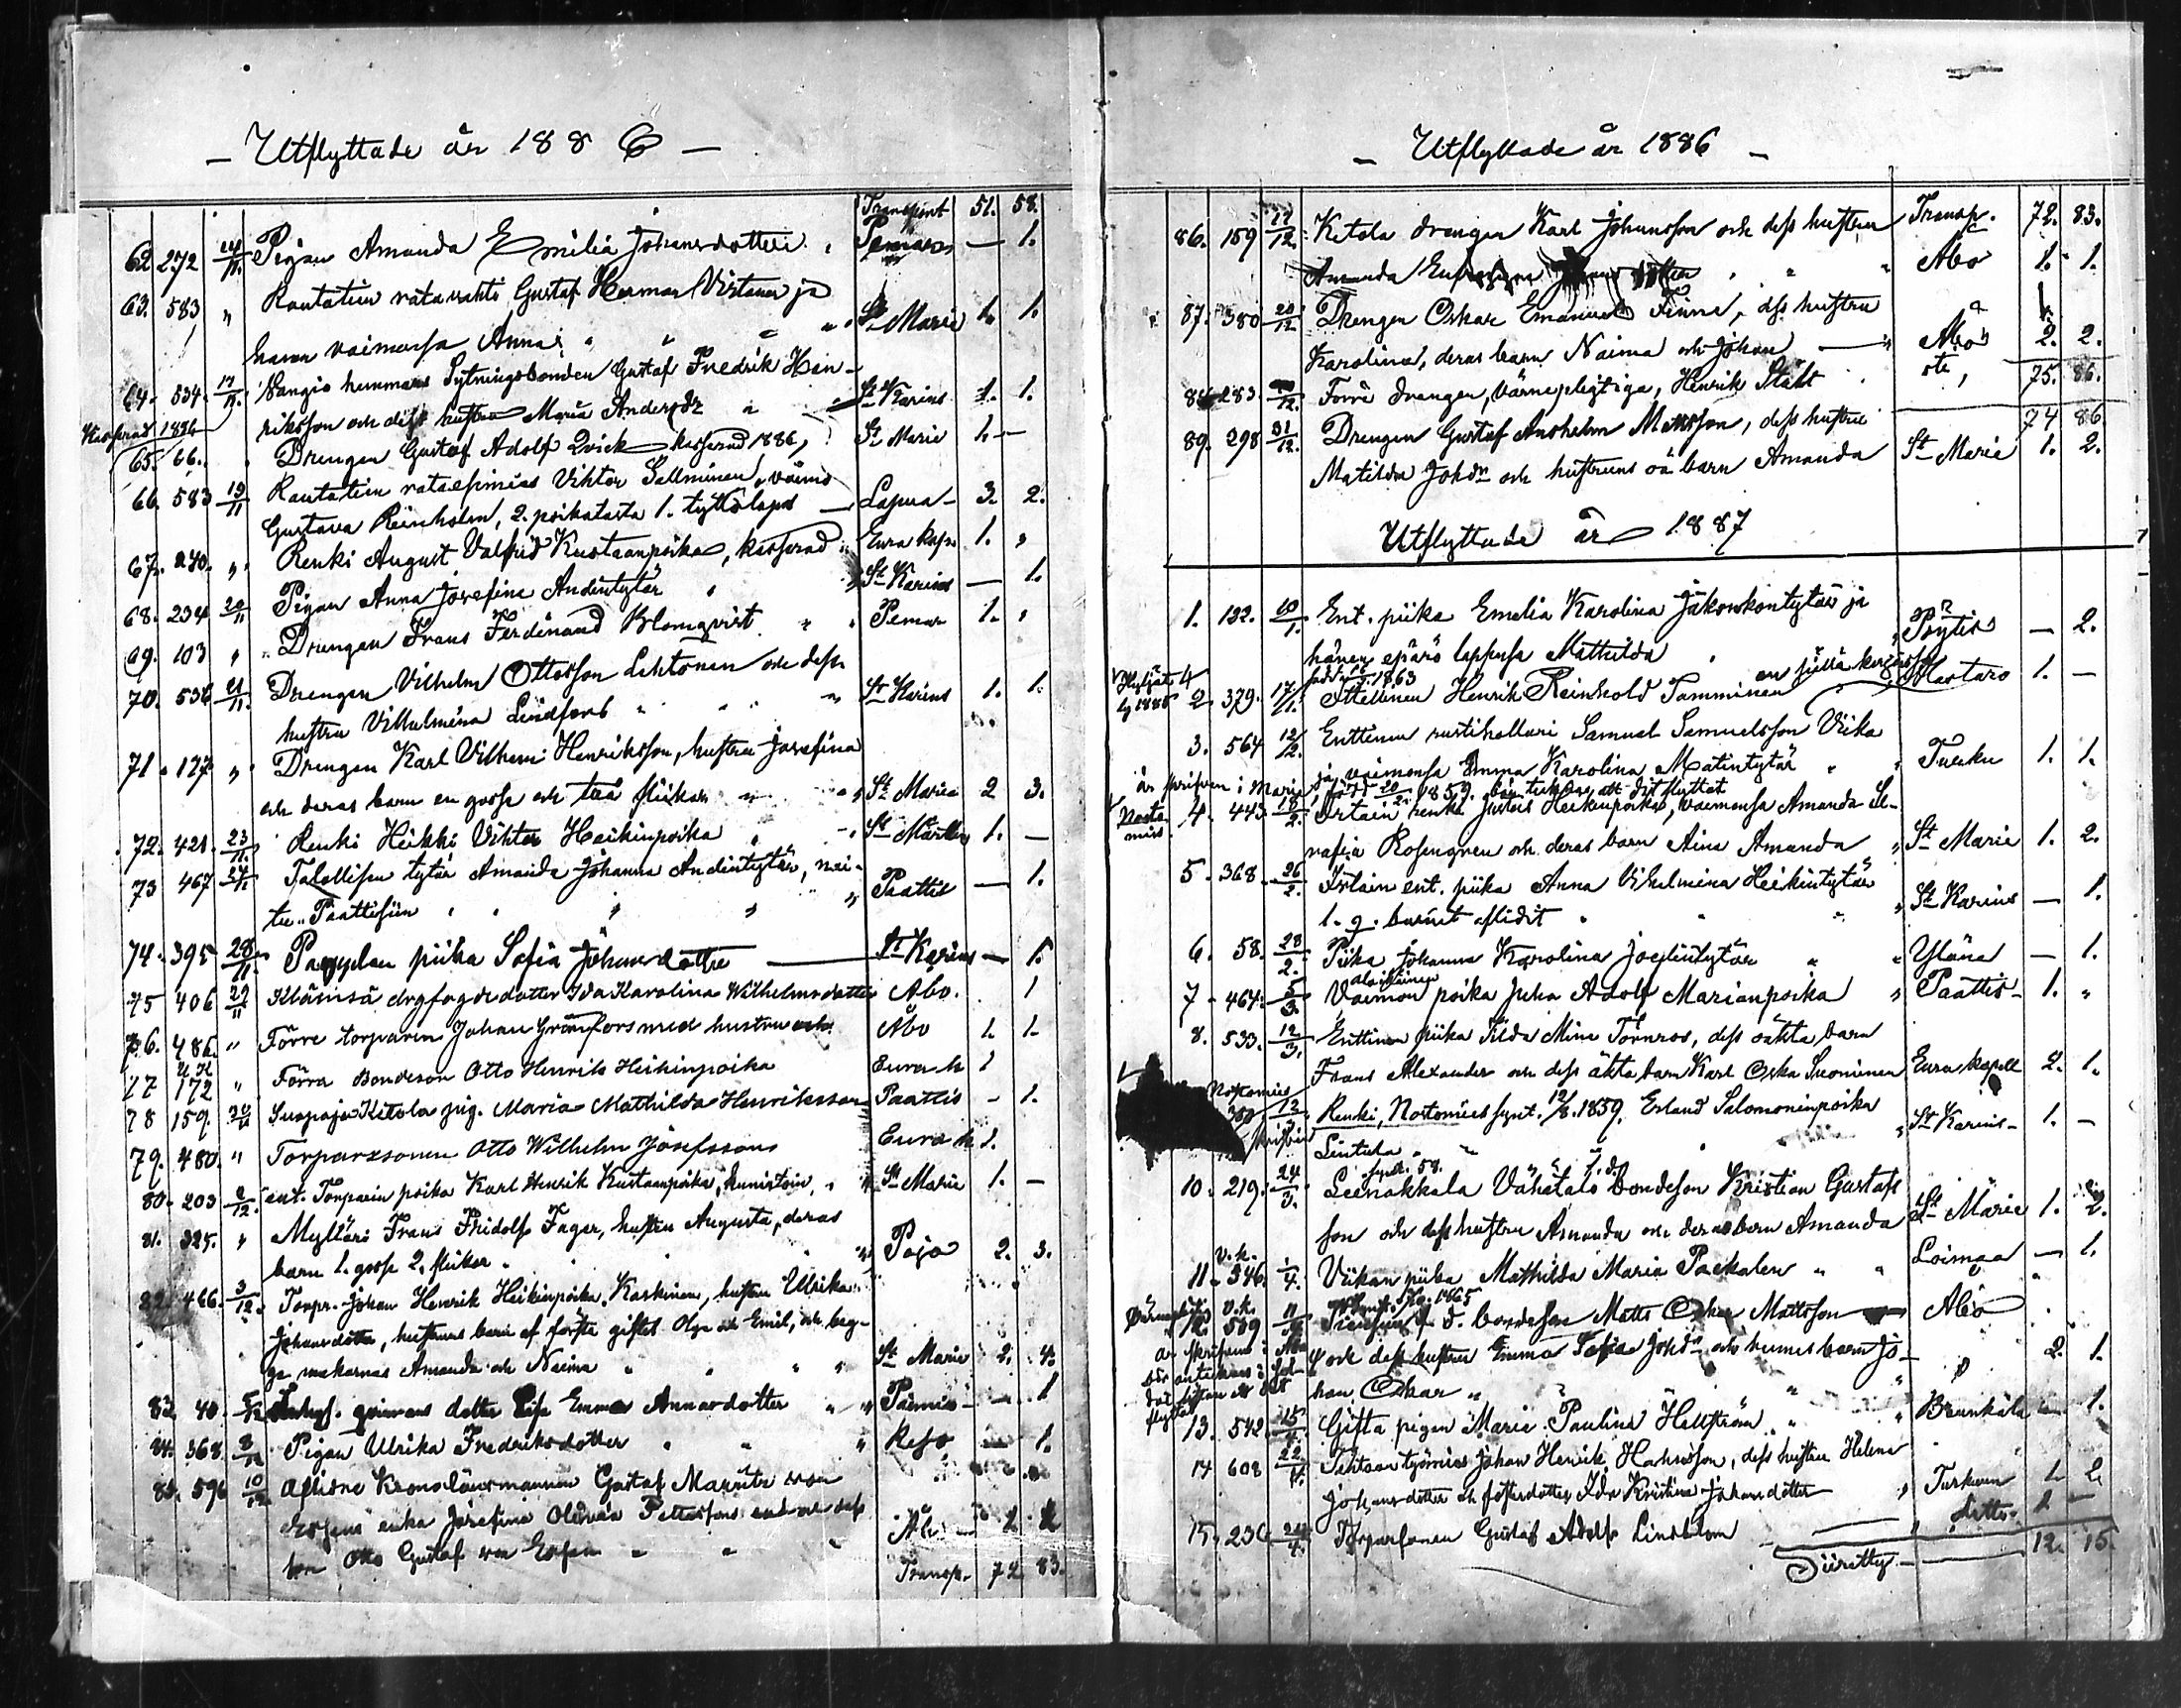 - Utflyttade år 1886 -
Transport 51. 58.
62 272 14/11. Pigan Amanda Emilia Johansdotter Pemar — 1.
63. 583 " Rautatien ratavahti Gustaf Herman Virtanen ja
hanen vaimonsa Anna " " " St Marie 1. 1.
64. 534. 17/11. Nangis hemmans Sytningsbonden Gustaf Fredrik Hen-
riksson och dess hustru Maria Andersdr " St Karins 1. 1.
Kasserad 1886
65. 66. Drengen Gustaf Adolf Qvick kasserad 1886, St Marie 1. —
66. 583 19/11 Rautatien rataesimies Vihtor Sallminen, vaimo
Gustava Reinholm, 2. poikalasta 1. tyttölaps — Lapua — 3. 2.
67. 240. " Renki August Valfrid Kustaanpoika, kasserad " Eura kap. 1. "
68. 234 20/11 Pigan Anna Josefina Andintytär " St Karins — 1.
69. 103 " Drengen Frans Ferdinand Blomqvist " " Pemar 1. "
70. 536 21/11. Drengen Vilhelm Ottosson Lehtonen och dess
hustru Vilhelmina Lindfors " " " St Karins 1. 1.
71. 127 " Drengen Karl Vilhelm Henriksson, hustru Josefina
och deras barn en gosse och två flickor " " St Marie 2 3.
72. 421. 23/11. Renki Heikki Vihtor Heikinpoika " St Mårtens 1. —
73 467 Talollisen tytär Amanda Johanna Andintytär, nai-
tu Paattisiin " " " Paattis — 1.
74. 395 28/11. piika Sofia Johansdotter — St Karins — 1.
75 406 29/11 dotter Ida Karolina Wilhelmsdotter Åbo. 1
76. 486. " Förre torparen Johan Grönfors med hustru Åbo 1. 1.
77 172 " Förra Bondeson Otto Henrik Heikinpoika Eura k 1
78 159. 30/11 Suopaja Ketola pig. Maria Mathilda Henriksson Paattis — 1.
79. 480. " Torparesonen Otto Wilhelm Josefsson Eura k 1.
80. 203 2/12. ent. Torparin poika Karl Henrik Kustaanpoika, " St Marie 1. —
81. 325. " Mylläri Frans Fridolf Fager, hustru Augusta, deras
barn 1. gosse 2. flickor. " Pojo 2. 3.
82. 466. 3/12. Torpr. Johan Henrik Heikinpoika Koskinen, hustru Ulrika
Johansdotter, hustruns barn af första giftet Olga och Emil, och beg-
ge makarnas Amanda och Naima " " St Marie 2. 4.
83. 40. dotter Lisa Emma Annasdotter " " Päemia — 1
84. 368. 8/12 Pigan Ulrika Fredriksdotter " " — 1.
85. 596 10/12 Aflidne Kronolänsmannen Gustaf Mauritz von
Essens enka Josefina Olivia och dess
son Otto Gustaf von Essen " " Åbo
Transp. 72. 83.
- Utflyttade år 1886 -
Transp. 72. 83.
86. 159 17/12. Ketola drengen Karl Johansson och dess hustru
Amanda " " Åbo 1. 1.
87. 380 20/12. Drengen Oskar Emanuel Finne, dess hustru
Karolina, deras barn Naima och Johan — " Åbo 2. 2.
88. 283 /12. Förre drengen, värnepligtiga, Henrik Stålt 75. 86.
74 86.
89. 298 31/12. Drengen Gustaf Anshelm Mattsson, dess hustru
Matilda Johdr och hustruns oä barn Amanda St Marie 1. 2.
Utflyttade år 1887
1. 132. 10/1. Ent. piika Emelia Karolina Jakowkontytär ja
hänen epärö lapsensa Mathilda " Pöytis — 2.
född 1863
2. 379. 17/1. Itsellinen Henrik Reinhold Tamminen Mastaro 1. —
3. 564 12/2. Enttinen rustihollari Samuel Samuelsson Viika
ja vaimonsa Emma Karolina Matintytär " Turku 1. 1.
Nosto-
mies 4. 443. 18/2. Irtain renki Justus Heikinpoika, vaimonsa Amanda Se-
rafia Rosengren och deras barn Aina Amanda " St Marie 1. 2.
5. 368. 26/2. Irtain ent. piika Anna Vilhelmina Heikintytär
1. g. barnet aflidit " " St Karins — 1.
6. 58. 28/2. Piika Johanna Karolina Joelintytär " " Yläne — 1.
7. 464. 5/3. Vaimon poika Juha Adolf Marianpoika " Paattis — 1. "
8. 533. 12/3. Enttinen piika Tilda Mina Törnros, dess oäkta barn
Frans Alexander och dess äkta barn Karl Oskar Suominen Eura kapell 2. 1.
Nostomies
380. 12/3 Renki, Nostomies synt. 12/8. 1859. Erland Salomoninpoika
Lintula " " " St Karins — 1. —
10. 219. 24/3. Leinakkala Vähätalo bondeson Kristian Gustafs
son och dess hustru Amanda och deras barn Amanda St Marie 1. 2.
v.k.
11. 346. 1/4. Viikan piika Mathilda Maria Paekalen " " Loimaa — 1.
v.k.
12. 509 bondeson Matts Oskar Mattsson Åbo
och dess hustru Emma Sofia Johdr och hennes barn Jo- 2. 1.
han Oskar " " " "
13. 542. 15/4. Gifta pigan Maria Paulina Hellström " " Brunkala — 1.
14 608 22/4. Johan Henrik dess hustru Helena
Johansdotter och fosterdotter Ida Kristina Johansdotter " Turkuun 1. 2.
15. 230 24/4. Torparsonen Gustaf Adolf Lindblom — " ditto 1 —
Siiretty — 12. 15.